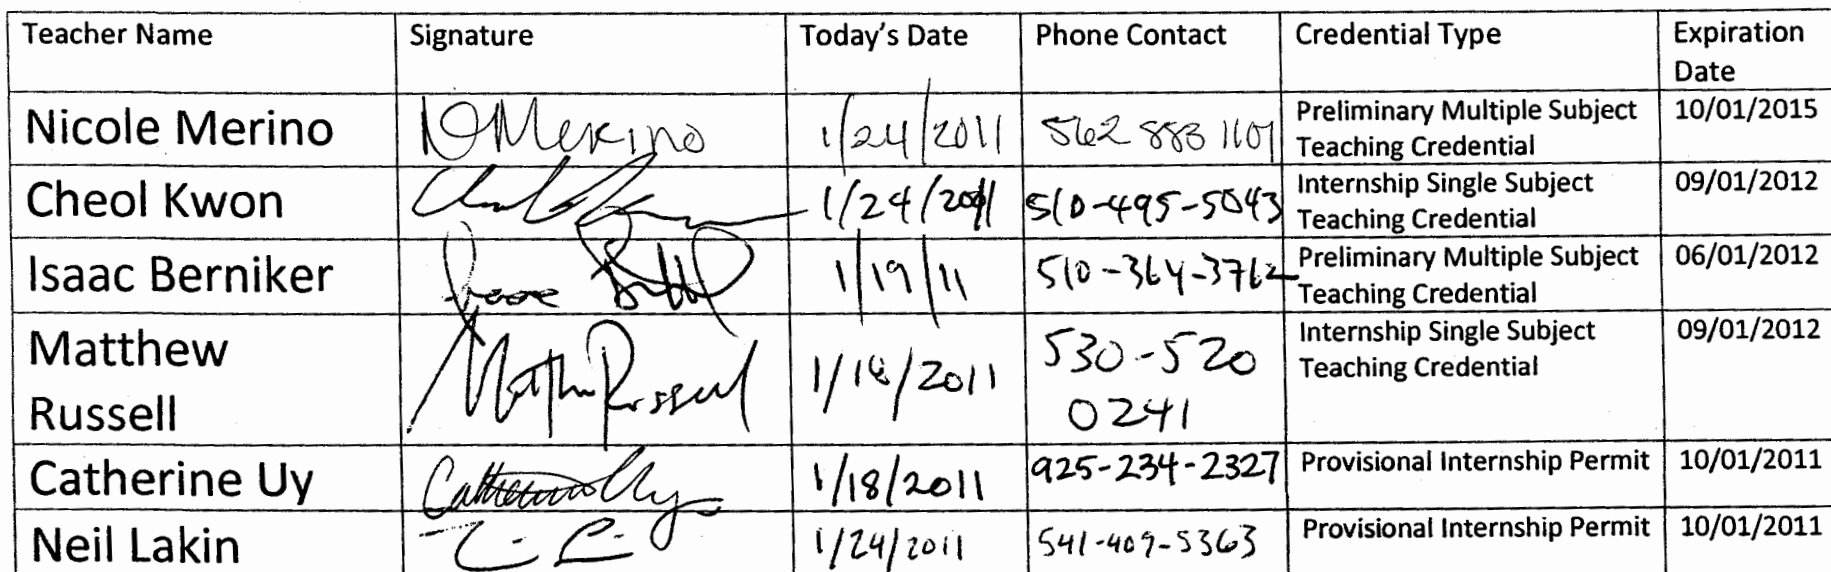 Teacher Name Signature Today's Date Phone Contact Credential Type Expiration Date
Nicole Merino NMerino 1/24/2011 562 883 1107 Preliminary Multiple Subject Teaching Credential 10/01/2015
Cheol Kwon 1/24/2011 510-495-5043 Internship Single Subject Teaching Credential 09/01/2012
Isaac Berniker Isaac 1/19/11 510-364-3762 Preliminary Multiple Subject Teaching Credential 06/01/2012
Matthew Russell Matthew Russell 1/18/2011 530-520 0241 Internship Single Subject Teaching Credential 09/01/2012
Catherine Uy Catherine Uy 1/18/2011 925-234-2327 Provisional Internship Permit 10/01/2011
Neil Lakin 1/24/2011 541-409-5363 Provisional Internship Permit 10/01/2011